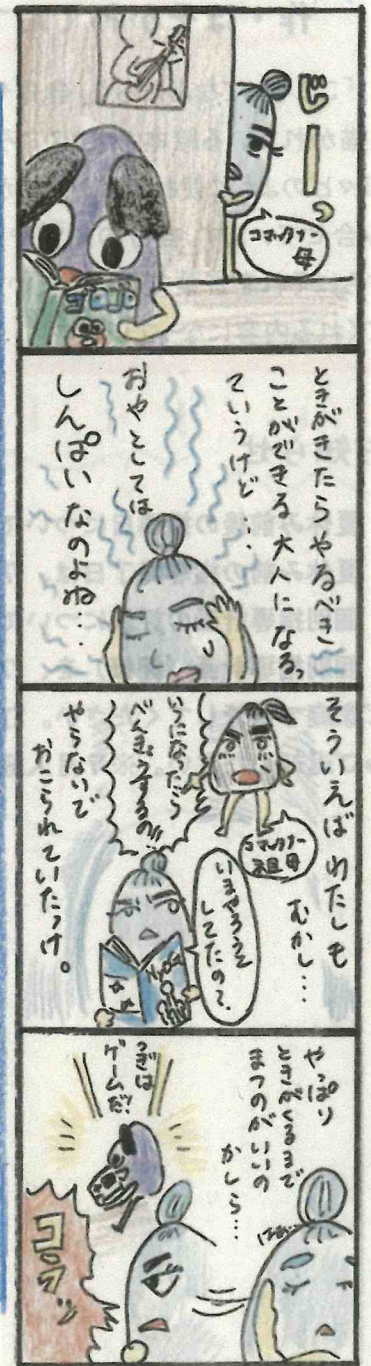 ジーッ
コマッタナー
母
ときがきたらやるべき
ことができる大人になるっ
ていうけど…
おやとしては
しんぱいなのよね…
そういえばわたしも
むかし…
コマッタナー
祖母
いつになったら
べんきょうするの!!
いまやろうと
してたの〜。
やらないで
おこられていたっけ。
やっぱり
ときがくるまで
まつのがいいの
かしら…
つぎは
ゲームだ!
コラッ